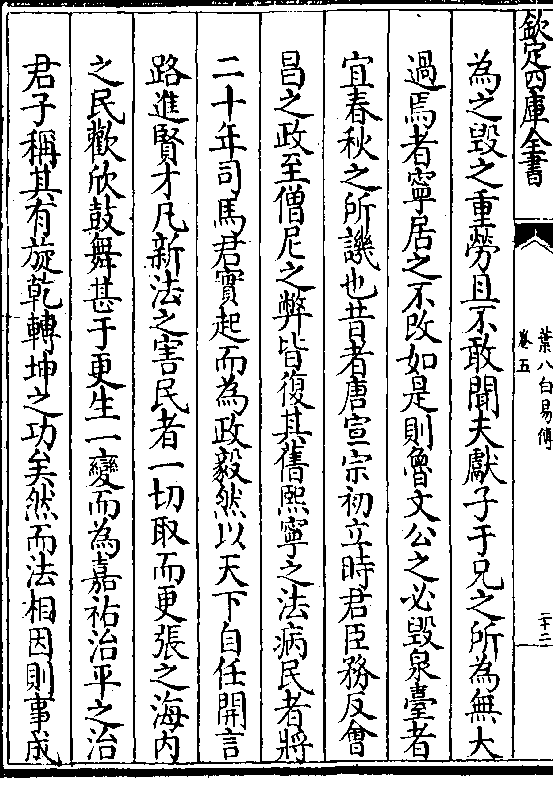 欽定四庫全書
葉八白易傳
卷五
二十二
為之毀之重勞且不敢聞夫獻子于兄之所為無大
過焉者寧居之不改如是則魯文公之必毀泉臺者
宜春秋之所譏也昔者唐宣宗初立時君臣務反會
昌之政至僧尼之弊皆復其舊熙寧之法病民者將
二十年司馬君實起而為政毅然以天下自任開言
路進賢才凡新法之害民者一切取而更張之海內
之民歡欣鼓舞甚于更生一變而為嘉祐治平之治
君子稱其有旋乾轉坤之功矣然而法相因則事成